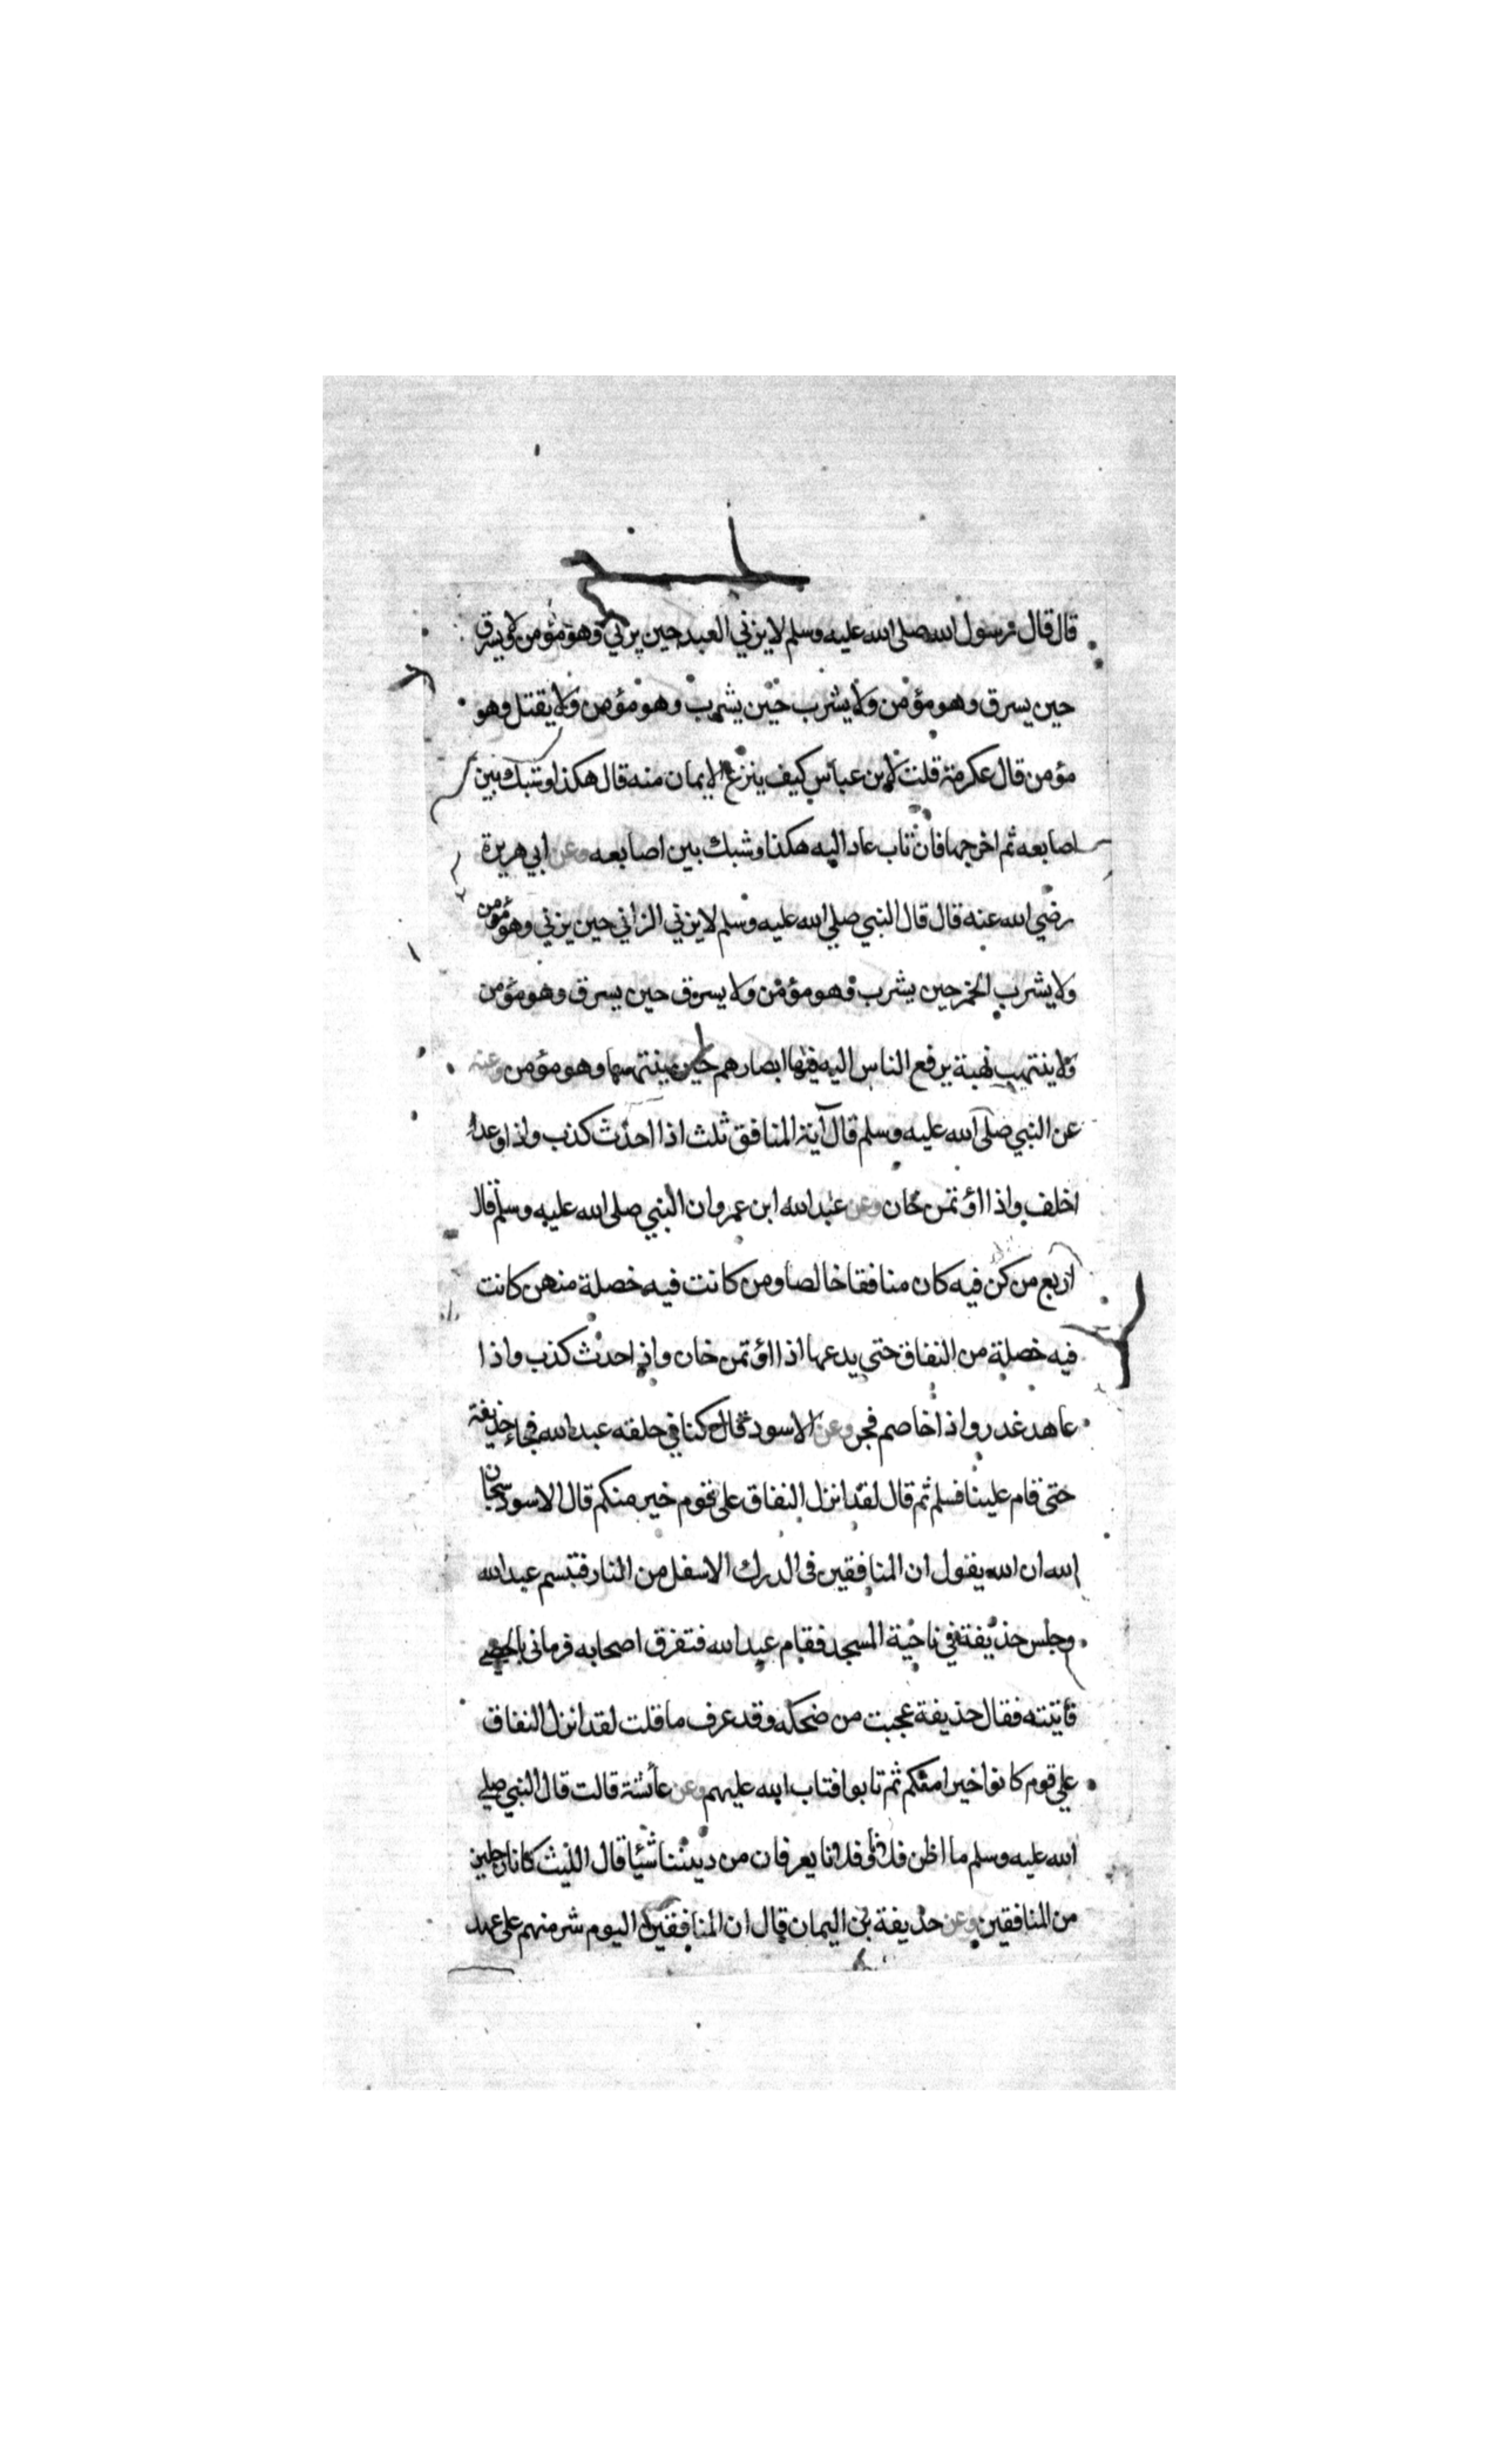 قال قال رسول الله صلى الله عليه وسلم لا يزني العبد حين يزني وهو مؤمن لا يسرق
حين يسرق وهو مؤمن ولا يشرب حين يشرب وهو مؤمن ولا يقتل وهو
مؤمن قال عكرمة قلت لابن عباس كيف ينزع الايمان منه قال هكذا وشبك بين
اصابعه ثم اخرجها فان تاب عاد اليه هكذا وشبك بين اصابعه وعن ابي هريرة
رضي الله عنه قال قال النبي صلي الله عليه وسلم لا يزني الزاني حين يزني وهو مؤمن
ولا يشرب الخمر حين يشرب وهو مؤمن ولا يسرق حين يسرق وهو مؤمن
ولا ينتهب نهبة يرفع الناس اليه فيها ابصارهم حين ينتهبها وهو مؤمن وعنه
عن النبي صلى الله عليه وسلم قال آية المنافق ثلث اذا احدث كذب واذا وعد
اخلف واذا اؤتمن خان وعن عبد الله ابن عمرو ان النبي صلى الله عليه وسلم قال
اربع من كن فيه كان منافقا خالصا ومن كانت فيه خصلة منهن كانت
فيه خصلة من النفاق حتي يدعها اذا اؤتمن خان واذ احدث كذب واذا
عاهد غدر واذا خاصم فجر وعن الاسود قال كنا في حلقه عبد الله فجاء حذيفة
حتى قام علينا فسلم ثم قال لقد انزل النفاق على قوم خير منكم قال الاسود سبحان
الله ان الله يقول ان المنافقين فى الدرك الاسفل من النار فتبسم عبد الله
وجلس حذيفة في ناحية المسجد فقام عبد الله فتفرق اصحابه فرمانى بالحصى
فأتيته فقال حذيفة عجبت من ضحكه وقد عرف ما قلت لقد انزل النفاق
علي قوم كانوا خيرا منكم ثم تابوا فتاب الله عليهم وعن عائشة قالت قال النبي صلي
الله عليه وسلم ما اظن فلانا وفلانا يعرفان من ديننا شيئا قال الليث كانا رجلين
من المنافقين وعن حذيفة بن اليمان قال ان المنافقين اليوم شر منهم على عهد